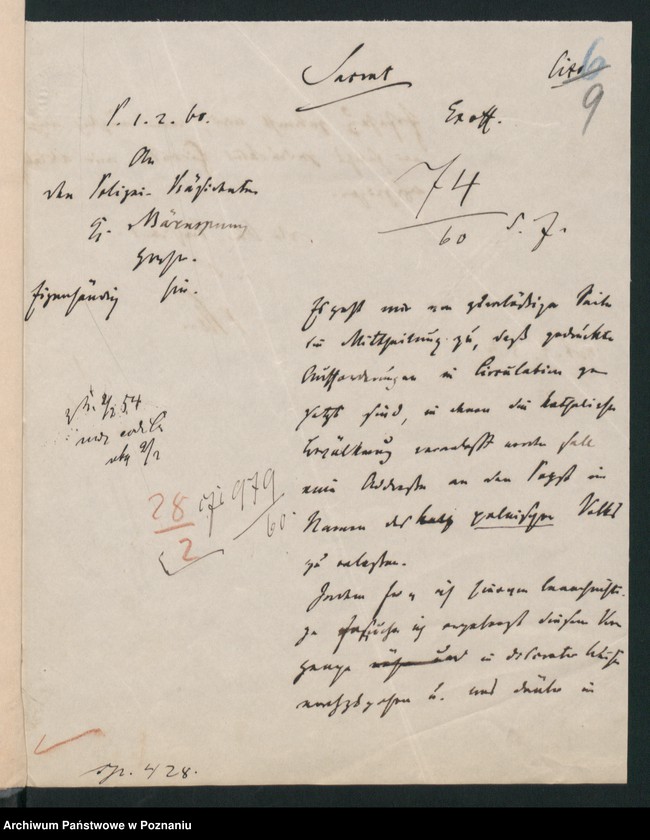 Secret
Cito
6
9
P. 1. 2. 60.
An
den Polizei-Präsidenten
v. Bärensprung
Hierselbst
Eigenhändig
74
60
S. 7.
Es geht mir von zuverlässiger Seite
die Mittheilung zu, daß gedruckte
Aufforderungen in Circulation ge
setzt sind, in denen die katholische
Bevölkerung veranlaßt werden soll
eine Addresse an den Papst im
Namen des polnischen Volks
zu erlassen.
Indem ich hiervon benachrichti-
ge ersuche ich ergebenst diesem Vor
gange in discreter Weise
nachzugehen u. mir darüber in
2/2 54
2/2
28
2
979
60.
Sp. 428.
Archiwum Państwowe w Poznaniu